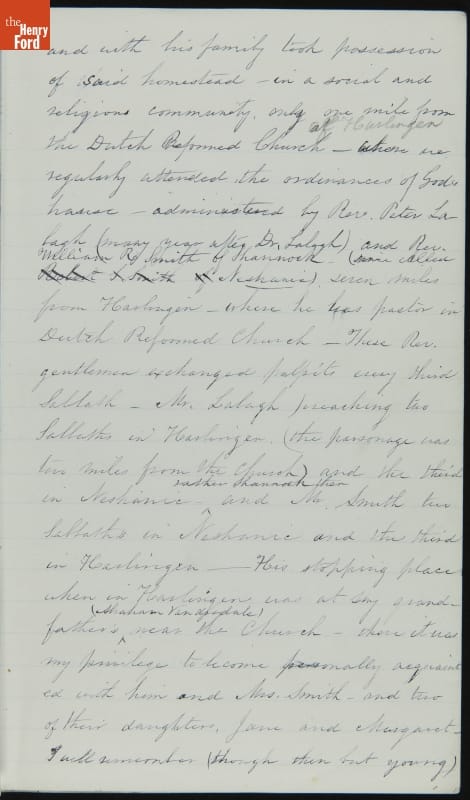 the
Henry
Ford
and with his family took possession
of said homestead – in a social and
religious community, only one mile from
at Harlingen
the Dutch Reformed Church – where we
regularly attended the ordinances of God's
house – administered by Rev. Peter La-
bagh (many years after Dr. Labagh) and Rev.
William R. Smith of Shannock – (now called
Robert J. Smith of Neshanic) seven miles
from Harlingen – where he was pastor in
Dutch Reformed Church – These Rev.
gentlemen exchanged pulpits every third
Sabbath – Mr. Labagh preaching two
Sabbaths in Harlingen. (the parsonage was
two miles from the Church) and the third
rather Shannock then
in Neshanic – and Mr. Smith two
Sabbaths in Neshanic and the third
in Harlingen – His stopping place
when in Harlingen was at my grand-
(Abraham Vanarsdale)
father's near the Church – there it was
my privilege to become personally acquaint
ed with him and Mrs. Smith – and two
of their daughters, Jane and Margaret –
I well remember (though then but young)